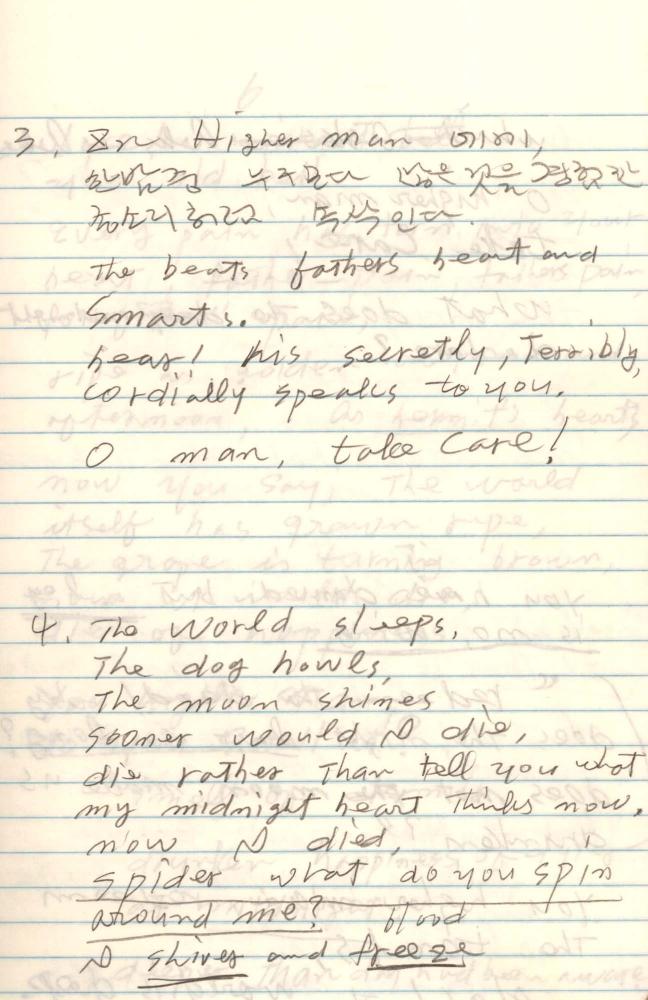 3. In Higher man 에게,
한밤중 누구보다 많은 것을 경험한
종소리처럼 속삭인다.
The beats fathers heart and
Smarts.
hear! his secretly, Terribly,
cordially speaks to you.
O man, take care!
4. The world sleeps,
The dog howls,
The moon shines
sooner would I die,
die rather Than tell you what
my midnight heart Thinks now.
now I died,
spider what do you spin
around me? blood
I shiver and freeze